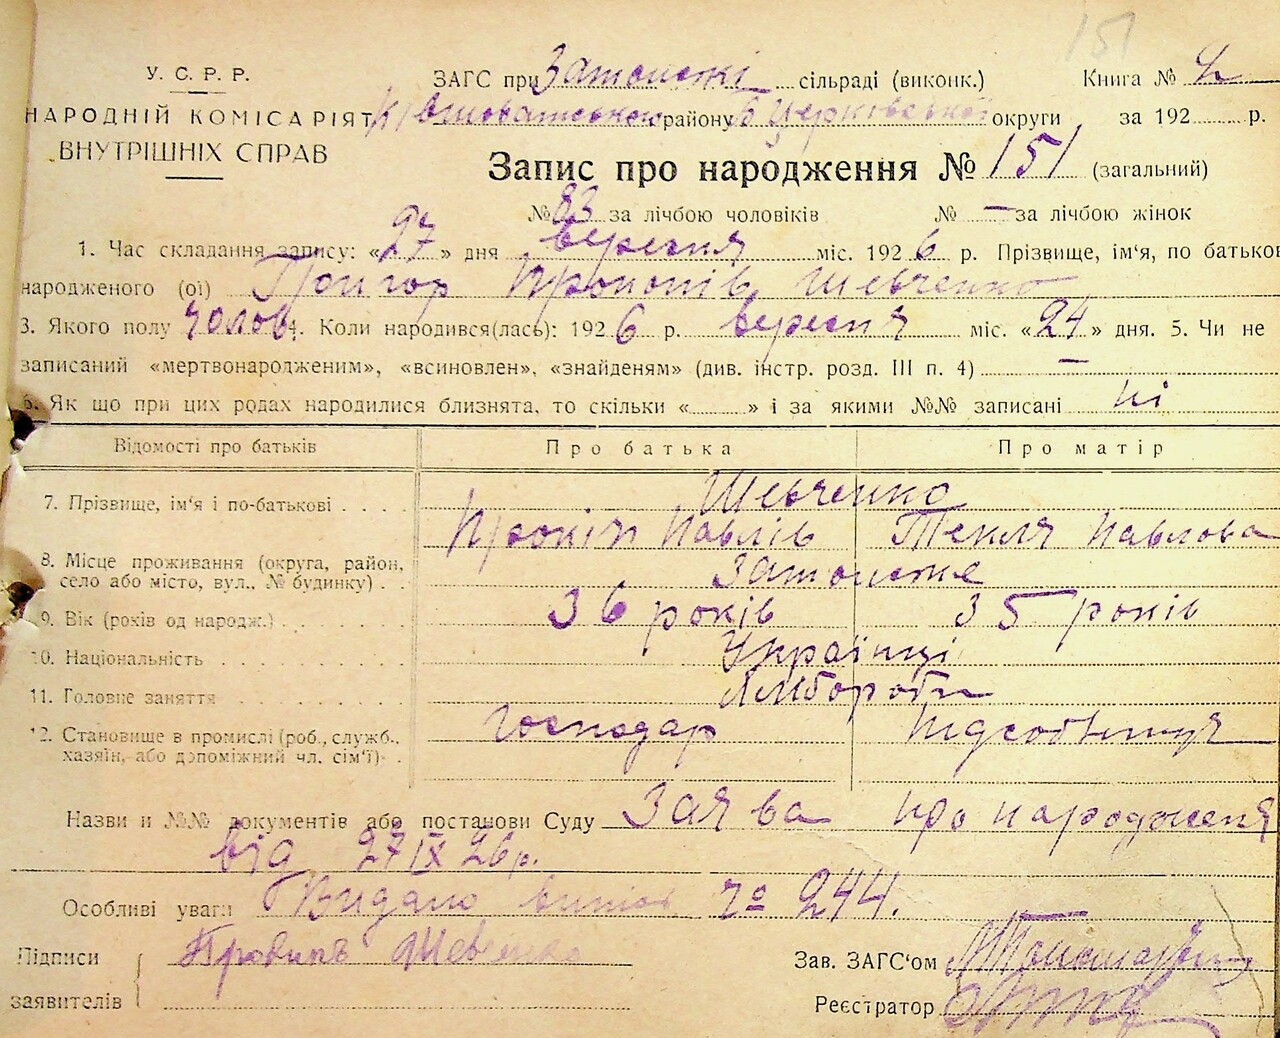 151
У. С. Р. Р.
НАРОДНІЙ КОМІСАРІЯТ
ВНУТРІШНІХ СПРАВ
ЗАГС при Затонські сільраді (виконк.) Книга №
району Б Церківської округи за 192 р.
Запис про народження № 151 (загальний)
№ 83 за лічбою чоловіків № — за лічбою жінок
1. Час складання запису: «27» дня вересня міс. 1926 р. Прізвище, ім'я, по батькові
народженого (ої) Григор Прокопів Шевченко
3. Якого полу чолов 4. Коли народився(лась): 1926 р. вересня міс. «24» дня. 5. Чи не
записаний «мертвонародженим», «всиновлен», «знайденям» (див. інстр. розд. III п. 4) —
6. Як що при цих родах народилися близнята, то скільки « » і за якими №№ записані ні
Відомості про батьків Про батька Про матір
7. Прізвище, ім'я і по-батькові Шевченко
Прокіп Павлів Текля Павлова
8. Місце проживання (округа, район,
село або місто, вул., № будинку)
9. Вік (років од народж.) 36 років 35 років
10. Національність Українці
11. Головне заняття
12. Становище в промислі (роб., служб., Господар
хазяїн, або допоміжний чл. сім'ї)
Назви и №№ документів або постанови Суду Заява про народженя
від 27 IX 26 р.
Особливі уваги Видано № 244.
Підписи
заявителів
Зав. ЗАГС'ом
Реєстратор